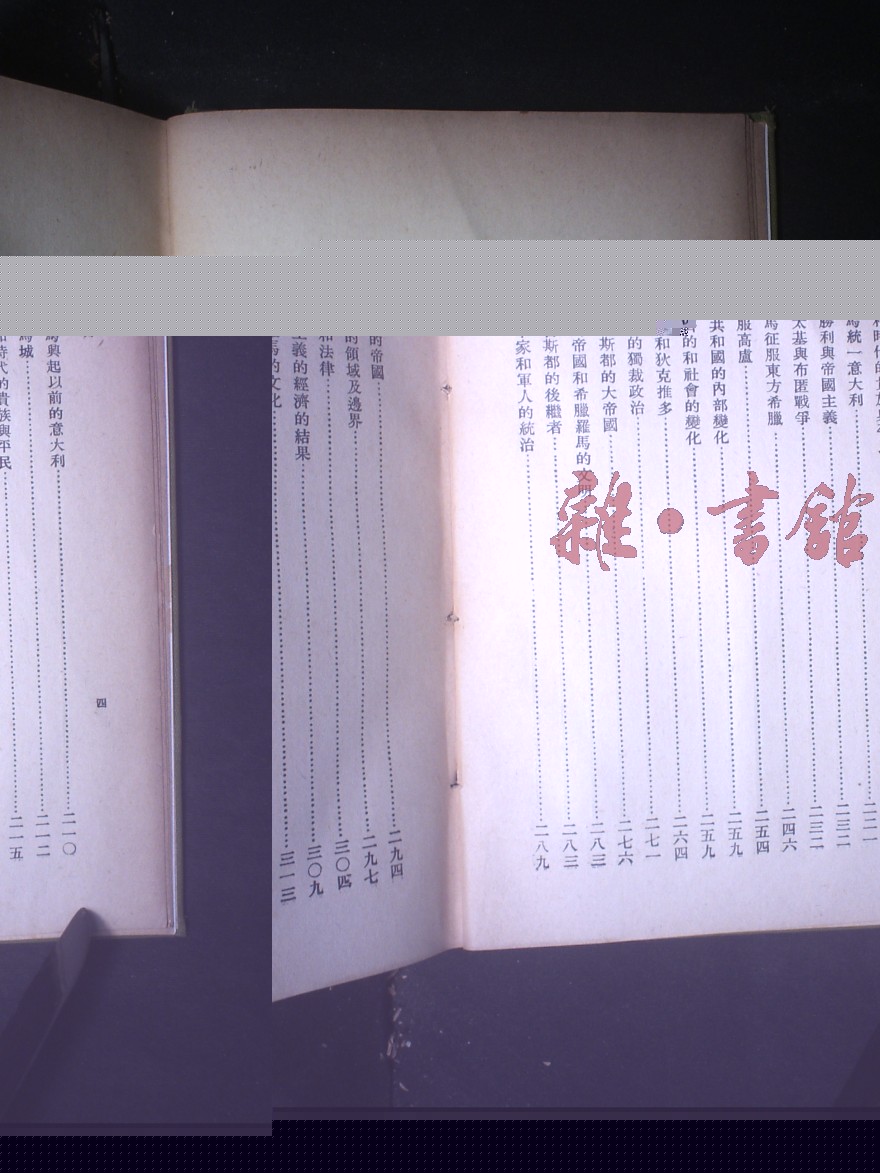 馬統一意大利……二二一
勝利與帝國主義……二三二
太基與布匿戰爭……二三二
馬征服東方希臘……二四六
服高盧……二五四
共和國的內部變化……二五九
的和社會的變化……二五九
和狄克推多……二六四
的獨裁政治……二七一
斯都的大帝國……二七六
帝國和希臘羅馬的文明……二八三
斯都的後繼者……二八三
家和軍人的統治……二八九
的帝國……二九四
的領域及邊界……二九七
和法律
主義的經濟的結果……三〇九
馬的文化……三一三
四
馬興起以前的意大利……二一〇
馬城……二一二
時代的貴族與平民……二一五
雜·書館